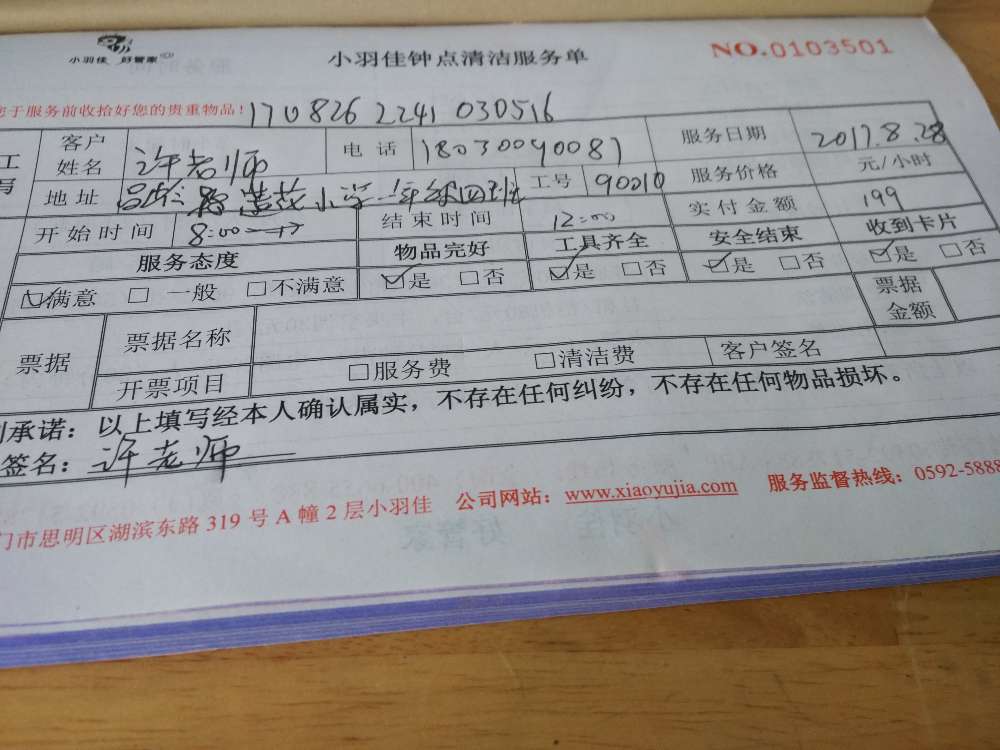 小羽佳 好管家
小羽佳钟点清洁服务单
NO.0103501
您于服务前收拾好您的贵重物品！ 170826 2241 030516
客户姓名 许老师 电话 18030090087 服务日期 2017.8.28
地址 小学一年级四班 工号 90010 服务价格 元/小时
开始时间 8:00 结束时间 12:00 实付金额 199
服务态度 物品完好 工具齐全 安全结束 收到卡片
☑满意 □一般 □不满意 ☑是 □否 ☑是 □否 ☑是 □否 ☑是 □否
票据 票据名称 票据金额
开票项目 □服务费 □清洁费 客户签名
承诺：以上填写经本人确认属实，不存在任何纠纷，不存在任何物品损坏。
签名：许老师
门市思明区湖滨东路 319 号 A 幢 2 层小羽佳 公司网站：www.xiaoyujia.com 服务监督热线：0592-5888